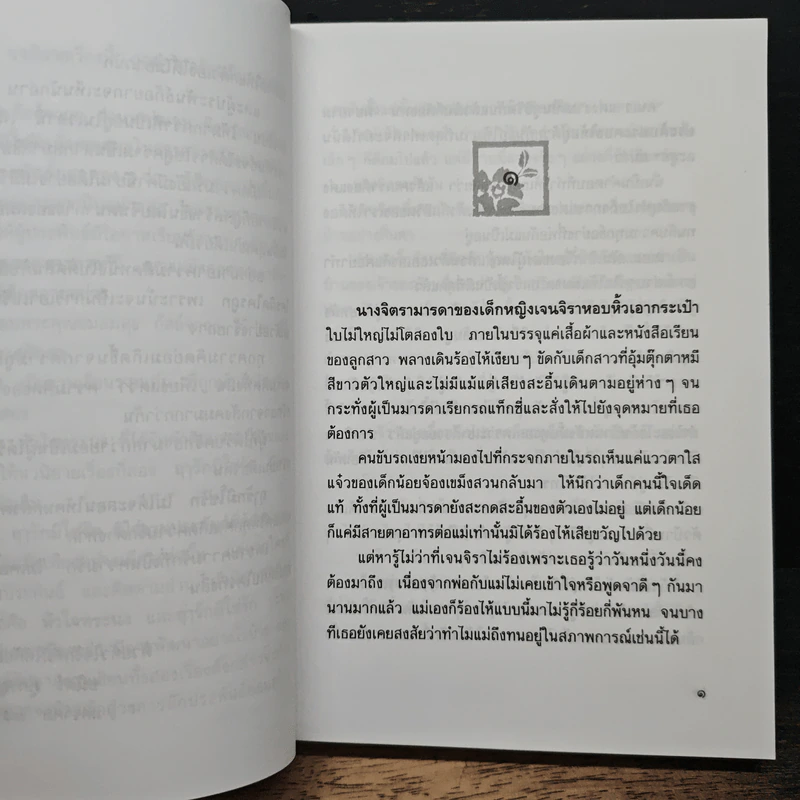 ๑
นางจิตรามารดาของเด็กหญิงเจนจิราหอบหิ้วเอากระเป๋า
ใบไม่ใหญ่ไม่โตสองใบ ภายในบรรจุแค่เสื้อผ้าและหนังสือเรียน
ของลูกสาว พลางเดินร้องไห้เงียบ ๆ ขัดกับเด็กสาวที่อุ้มตุ๊กตาหมี
สีขาวตัวใหญ่และไม่มีแม้แต่เสียงสะอื้นเดินตามอยู่ห่าง ๆ จน
กระทั่งผู้เป็นมารดาเรียกรถแท็กซี่และสั่งให้ไปยังจุดหมายที่เธอ
ต้องการ
คนขับรถเงยหน้ามองไปที่กระจกภายในรถเห็นแค่แววตาใส
แจ๋วของเด็กน้อยจ้องเขม็งสวนกลับมา ให้นึกว่าเด็กคนนี้ใจเด็ด
แท้ ทั้งที่ผู้เป็นมารดายังสะกดสะอื้นของตัวเองไม่อยู่ แต่เด็กน้อย
ก็แค่มีสายตาอาทรต่อแม่เท่านั้นมิได้ร้องไห้เสียขวัญไปด้วย
แต่หารู้ไม่ว่าที่เจนจิราไม่ร้องเพราะเธอรู้ว่าวันหนึ่งวันนี้คง
ต้องมาถึง เนื่องจากพ่อกับแม่ไม่เคยเข้าใจหรือพูดจาดี ๆ กันมา
นานมากแล้ว แม่เองก็ร้องไห้แบบนี้มาไม่รู้กี่ร้อยกี่พันหน จนบาง
ทีเธอยังเคยสงสัยว่าทำไมแม่ถึงทนอยู่ในสภาพการณ์เช่นนี้ได้
๑